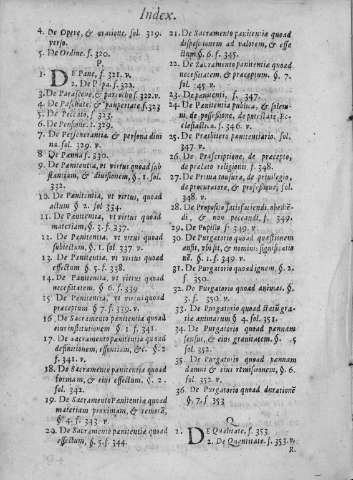 Index.
4. De Opere, & oratione, fol. 319.
verso.
5. De Ordine. f. 320.
P.
1. DE Pane, f. 321. v.
2. De Papa. f. 322.
3. De Parasceue, & parocho f. 322. v.
4. De Paschate, & paupertate f. 323
5. De Peccato, f. 323.
6. De Pensione. f. 329.
7. De Perseuerantia, & persona diui
na. fol. 329. v.
8 De Pœna f. 330.
9. De Pænitentia, vt virtus quoad sub
stantiam, & diuisionem, §. 1. fol.
332.
10. De Pænitentia, vt virtus, quoad
actum § 2. fol 334.
11. De Pænitentia, vt virtus quoad
materiam, §. 3. f. 337.
12. De Pænitentia, vt virtus quoad
subiectum, §. 1. fol. 337. v.
13. De Pænitentia, vt virtus quoad
effectum § 5. f. 338.
14. De Pænitentia, vt virtus quoad
necessitatem § 6. f. 339
15. De Pænitentia, vt virtus quoad
præceptum § 7. f. 339. v.
16. De Sacramento pænitentiæ quoad
eius institutionem § 1 f. 341.
17. De sacramento pænitentiæ quoad
definitionem, essentiam, &c. § 2
f. 341. v.
18. De Sacramento pænitentiæ quoad
formam, & eius effectum. § 2.
fol. 342.
19. De Sacramento Pænitentiæ quoad
materiam proximam, & remotā,
§ 4. f. 343 v.
20. De Sacramento pænitentiæ quoad
effectum, §. 5. f. 344.
21. De Sacramento pænitentiæ quoad
dispositionem ad valorem, & effe
ctum §. 6. f. 345.
22. De Sacramento pænitentiæ quoad
necessitatem, & præceptum. § 7.
fol. 345 v.
23. De pænitenti, f. 347.
24. De Pænitentia publica, & solem
ni, de possessione, de potestate Ec-
clesiastica. f. 346. v.
25. De Præsbitero pænitentiario. fol.
347. v.
26. De Præscriptione, de præcepto,
de prælato religionis f. 348.
27. De Prima tonsura, de priuilegio,
de procuratore, & professione, fol.
348. v.
28. De Proposito satisfaciendi, obedie-
di, & non peccandi, f. 349.
29. De Pupillo f. 349 v
30. De Purgatorio quoad quæstionem
an sit, vbi sit, & nominis significatio
nē. § 1. f. 349. v.
31. De Purgatorio quoad ignem, § 2.
f. 350.
32. De Purgatorio quoad animas, §.
3. f. 350. v.
33. De Purgatorio quoad statū gra-
tiæ animarum § 4. fol. 351.
34. De Purgatorio quoad pœnam
sensus, & eius grauitatem. § 5
fol. 352.
35. De Purgatorio quoad pœnam
damni & eius remissionem, § 6.
fol. 352. v.
36. De Purgatorio quoad durationē
§ 7. f. 353
Q
1. DE Qualitate, f. 353.
2. De Quantitate. f. 353. v.
R.